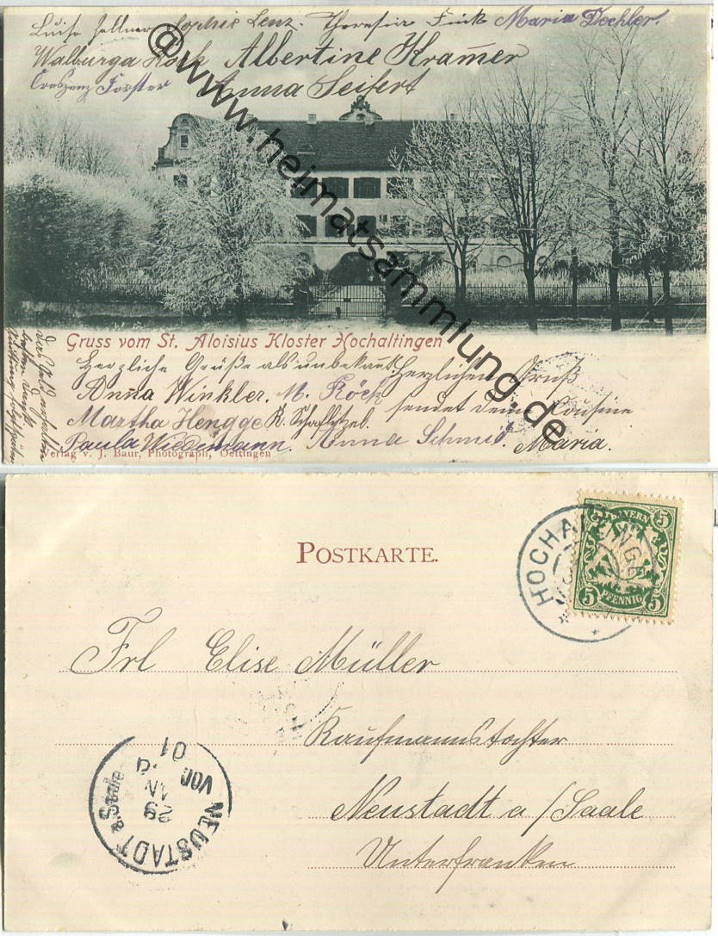 Luise Zellner Sophie Lenz. Theresia Fink Maria Dechler.
Walburga Höck Albertine Kramer
Creszenz Forster Anna Seifert
@www.heimatsammlung.de
Gruss vom St. Aloisius Kloster Hochaltingen
Herzliche Grüße als unbekannt Herzlichen Gruß
Anna Winkler. M. Röck sendet deine Cousine
Martha Hengge
Paula Wiedemann. Anna Schmid. Maria.
Verlag v. J. Baur, Photograph, Oettingen
POSTKARTE.
BAYERN
5 5
5 PFENNIG 5
HOCHALTINGEN
Frl Elise Müller
Kaufmannstochter
Neustadt a/Saale
Unterfranken
NEUSTADT a. Saale
29 JAN
VOR.
01